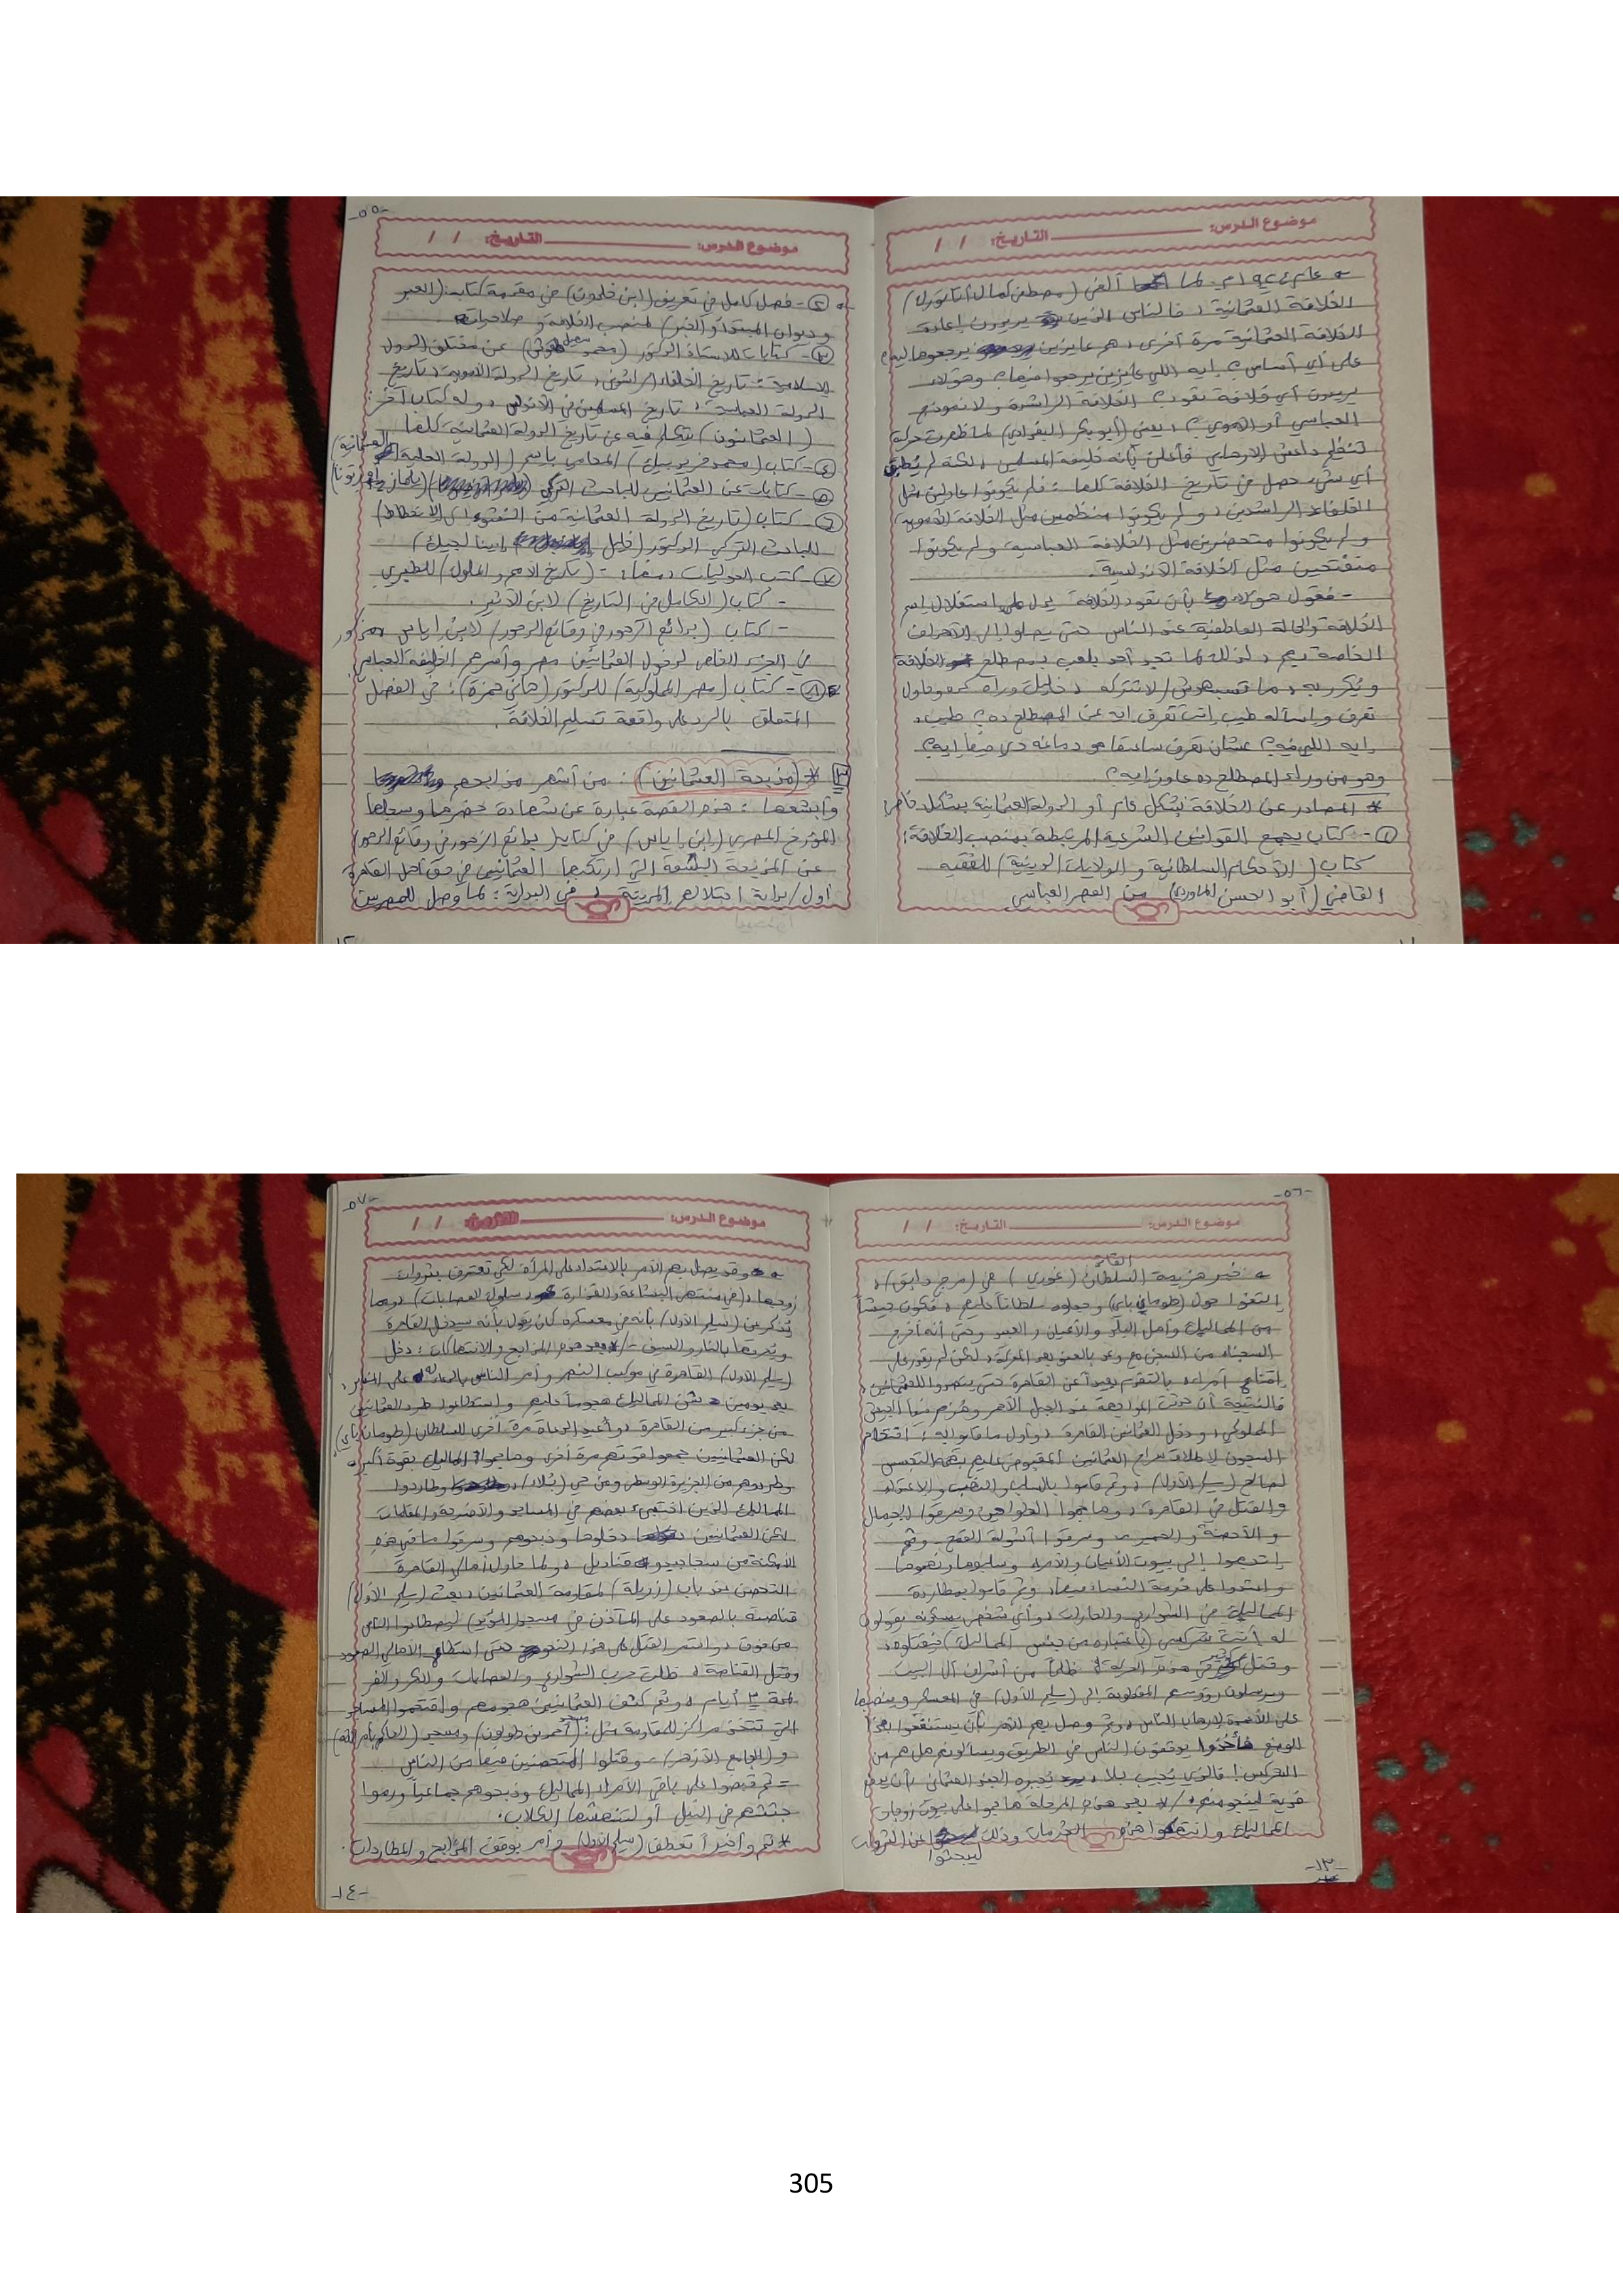 موضوع الدرس: التاريخ: / /
عام ١٩٢٤م. لما ألغى (مصطفى كمال أتاتورك)
الخلافة العثمانية، فالناس الذين يريدون إعادة
الخلافة العثمانية مرة أخرى، هم عايزين يرجعوها ليه؟
على أي أساس؟ إيه اللي عايزين يرجعوا منها؟ وهؤلاء
يريدون أي خلافة تعود؟ الخلافة الراشدة ولا نموذج
العباسي أو الأموي؟، يعني (أبو بكر البغدادي) لما ظهرت حركة
تنظيم داعش الإرهابي فأعلن بأنه خليفة المسلمين، لكنه لم يُطبق
أي شيء حصل في تاريخ الخلافة كلها: فلم يكونوا عادلين مثل
الخلفاء الراشدين، ولم يكونوا منظمين مثل الخلافة الأموية،
ولم يكونوا متحضرين مثل الخلافة العباسية ولم يكونوا
منفتحين مثل الخلافة الأندلسية.
- فقول هؤلاء بأن تعود الخلافة يدل على استغلال اسم
الخلافة والحالة العاطفية عند الناس حتى يصلوا إلى الأهداف
الخاصة بهم، لذلك لما تجد أحد يلعب بمصطلح الخلافة
ويُكرر به، ما تسيبهوش/لا تتركه، خليك وراه وحاول
تعرف واسأله طيب إنت تعرف ايه عن المصطلح ده؟ طيب،
إيه اللي فيه؟ عشان تعرف ساعتها هو دماغه دي فيها إيه؟
وهو من وراء المصطلح ده عاوز إيه؟
* المصادر عن الخلافة بشكل عام أو الدولة العثمانية بشكل خاص:
①- كتاب يجمع القوانين الشرعية المرتبطة بمنصب الخلافة:
كتاب (الأحكام السلطانية والولايات الدينية) للفقيه
القاضي (أبو الحسن الماوردي) من العصر العباسي
-٥٥-
موضوع الدرس: التاريخ: / /
②- فصل كامل في تعريف (ابن خلدون) في مقدمة كتابه (العبر
وديوان المبتدأ والخبر) لمنصب الخلافة وصلاحياته
③- كتابات للأستاذ الدكتور (محمد سهيل طقوش) عن مختلف الدول
الإسلامية: تاريخ الخلفاء الراشدين، تاريخ الدولة الأموية، تاريخ
الدولة العباسية، تاريخ المسلمين في الأندلس، وله كتاب آخر:
(العثمانيون) يتكلم فيه عن تاريخ الدولة العثمانية كلها
④- كتاب (محمد فريد بيك) المحامي باسم (الدولة العلية العثمانية)
⑤- كتابات عن العثمانيين للباحث التركي (يلماز أوزتونا)
⑥- كتاب (تاريخ الدولة العثمانية من النشوء إلى الانحطاط)
للباحث التركي الدكتور (خليل إينالجيك)
⑦- كتب الحوليات، منها: - (تاريخ الأمم والملوك) للطبري
- كتاب (الكامل في التاريخ) لابن الأثير.
- كتاب (بدائع الزهور في وقائع الدهور) لابن إياس مذكور
في الجزء الخاص لدخول العثمانيين مصر وأسرهم الخليفة العباسي
⑧- كتاب (مصر المملوكية) للدكتور (هاني حمزة): في الفصل
المتعلق بالرد على واقعة تسليم الخلافة.
٣ * (مذبحة العثمانيين): من أشهر مذابحهم
وأبشعها: هذه القصة عبارة عن شهادة حضرها وسجلها
المؤرخ المصري (ابن إياس) في كتابه بدائع الزهور في وقائع الدهور
عن المذبحة البشعة التي ارتكبها العثمانيين في حق أهل القاهرة
أول/بداية احتلالهم المدينة. في البداية: لما وصل للمصريين
-١٢-
-٥٦-
موضوع الدرس: التاريخ: / /
خبر هزيمة السلطان (الغوري) في (مرج دابق)،
التفوا حول (طومان باي) وجعلوه سلطاناً عليهم، فكون جيشاً
من المماليك وأهل البلد والأعيان والعبيد وحتى أنه أخرج
السجناء من السجن مع وعد بالعفو بعد المعركة، لكن لم يقدر على
إقناع أمراءه بالتقدم بعيداً عن القاهرة حتى يتصدوا للعثمانيين،
فالنتيجة أن حدثت المواجهة عند الجبل الأحمر وهُزم فيها الجيش
المملوكي، ودخل العثمانيين القاهرة، وأول ما قاموا به: اقتحام
السجون لإطلاق سراح العثمانيين المقبوض عليهم بتهمة التجسس
لصالح (سليم الأول)، وثم قاموا بالسلب والنهب والاعتداء
والقتل في القاهرة، وهاجموا الطواحين وسرقوا الجمال
والأحصنة والحمير، وسرقوا أشولة القمح، وثم
اتجهوا إلى بيوت الأعيان والأمراء وسلبوها ونهبوها
واعتدوا على حرمة النساء فيها، وثم قاموا بمطاردة
المماليك في الشوارع والحارات، وأي شخص يمسكونه يقولون
له أنت شركسي (باعتباره من جنس المماليك) فيقتلوه،
وقتل كثير في هذه الطريقة ظلماً من أشراف آل البيت
ويرسلون رؤوسهم المقطوعة إلى (سليم الأول) في المعسكر وينصبها
على الأعمدة لإرهاب الناس، وثم وصل بهم الأمر بأن يستغلوا هذا
الوضع فأخذوا يوقفون الناس في الطريق ويسألونهم هل هم من
الشركس! فالذي يُجيب بلا، يُجبره الجند العثماني بأن يدفع
فدية لينجو منهم، * بعد هذه المرحلة هاجموا على بيوت زوجات
المماليك وانتهكوا هذه الحرمات وذلك ليبحثوا عن الثروات
-١٣-
-٥٧-
موضوع الدرس: التاريخ: / /
وقد يصل بهم الأمر بالاعتداء على المرأة لكي تعترف بثروات
زوجها، (في منتهى البشاعة والقذارة، سلوك العصابات)، وبما
يُذكر عن (سليم الأول) بأنه في معسكره كان يقول بأنه سيدخل القاهرة
ويحرقها بالنار والسيف - * بعد هذه المذابح والانتهاكات: دخل
(سليم الأول) القاهرة في موكب النصر وأمر الناس بالدعاء له على المنابر،
بعد يومين شن المماليك هجوماً عليهم واستطاعوا طرد العثمانيين
من جزء كبير من القاهرة، وأعيد الدعاء مرة أخرى للسلطان (طومان باي)
لكن العثمانيين جمعوا قوتهم مرة أخرى وهاجموا المماليك بقوة أكبر،
وطردوهم من الجزيرة الوسطى ومن حي (بولاق) وطاردوا
المماليك الذين اختبئ بعضهم في المساجد والأضرحة والمقامات
لكن العثمانيين دخلوها وذبحوهم وسرقوا ما في هذه
الأمكنة من سجاجيد وقناديل، ولما حاول أهالي القاهرة
التحصن عند باب (زويلة) لمقاومة العثمانيين، بعث (سليم الأول)
قناصة بالصعود على المآذن في مسجد (المؤيد) ليصطادوا الناس
من فوق، واستمر القتل على هذا النحو حتى استطاع الأهالي الصعود
وقتل القناصة، ظلت حرب الشوارع والعصابات والكر والفر
لمدة ٣ أيام، وثم كثف العثمانيين هجومهم واقتحموا المساجد
التي تتخذ مراكز للمقاومة مثل: مسجد (أحمد بن طولون) ومسجد (الحاكم بأمر الله)
و(الجامع الأزهر)، وقتلوا المتحصنين فيها من الناس
= ثم قبضوا على باقي الأمراء المماليك وذبحوهم جماعياً ورموا
جثثهم في النيل أو لتنهشها الكلاب.
* ثم وأخيراً تعطف (سليم الأول) وأمر بوقف المذابح والمطاردات.
-١٤-
305